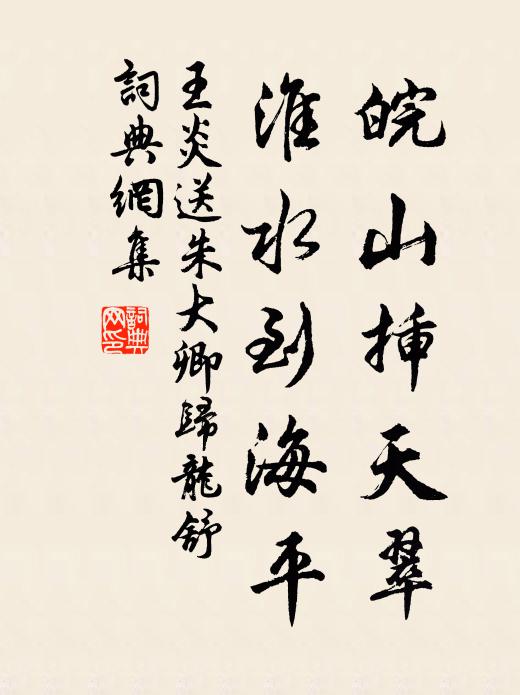 皖山挿天翠
淮水到海平
王炎送朱大卿歸龍舒
詞典網集
詞典
网印